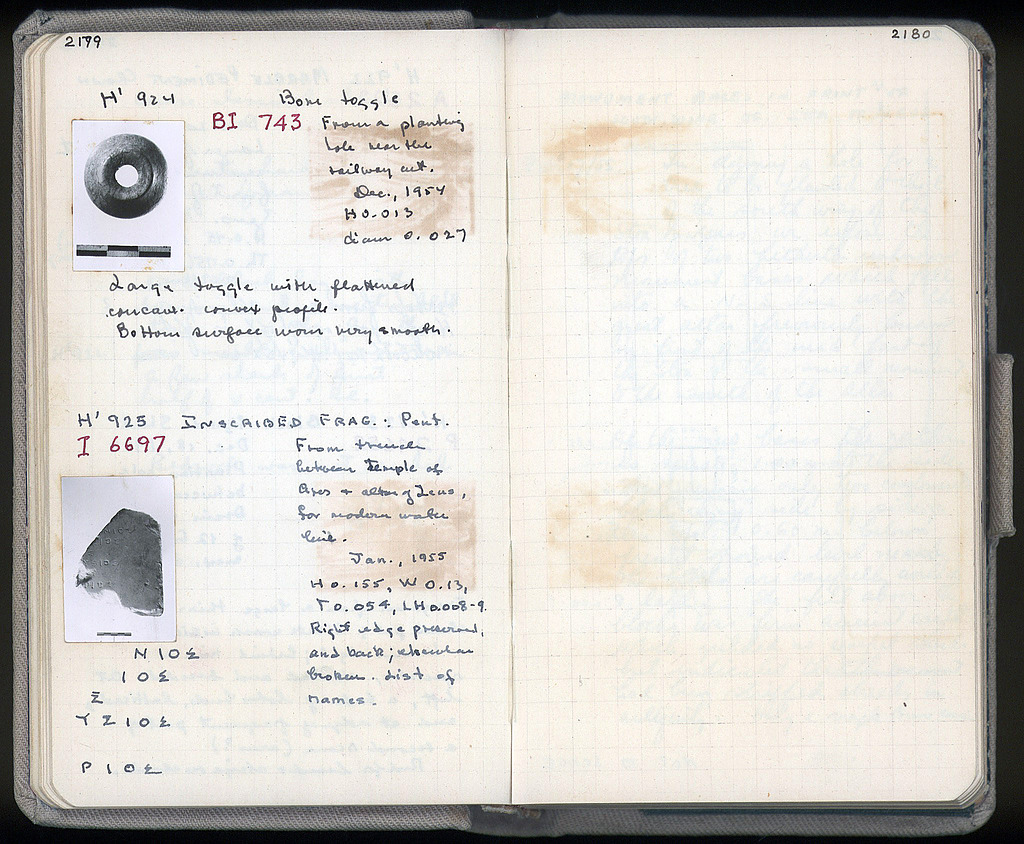 2199
2180
H' 924 Bone toggle
BI 743 From a planting
hole near the
railway cut.
Dec., 1954
H 0.013
diam 0.027
Large toggle with flattened
concave convex profile.
Bottom surface worn very smooth.
H' 925 INSCRIBED FRAG.: Pent.
I 6697
From trench
between temple of
Ares + altar of Zeus,
for modern water
line.
Jan., 1955
H 0.155, W 0.13,
T 0.054, LH 0.008-9.
Right edge preserved,
and back; elsewhere
broken. List of
names.
Ν Ι Ο Σ
Ι Ο Σ
Σ
Υ Σ Ι Ο Σ
Ρ Ι Ο Σ